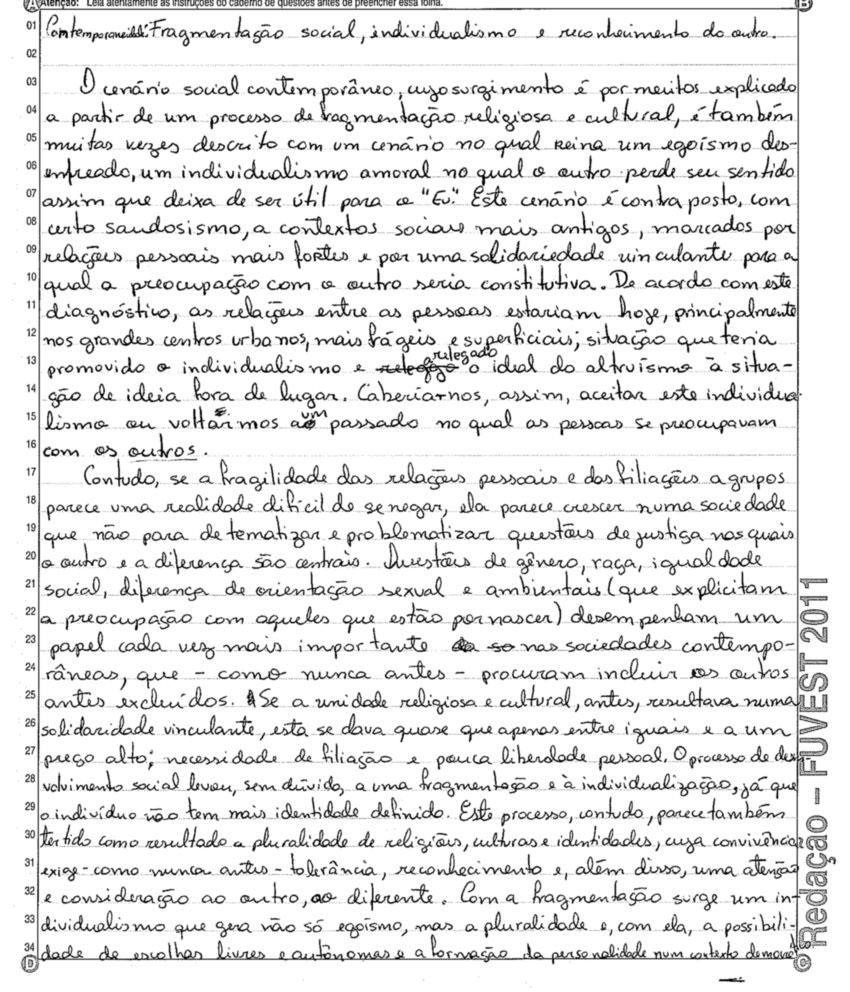 Atenção: Leia atentamente as instruções do caderno de questões antes de preencher essa folha.
A B
01 Contemporaneidade: Fragmentação social, individualismo e reconhecimento do outro.
02
03 O cenário social contemporâneo, cujo surgimento é por muitos explicado
04 a partir de um processo de fragmentação religiosa e cultural, é também
05 muitas vezes descrito com um cenário no qual reina um egoísmo des-
06 enfreado, um individualismo amoral no qual o outro perde seu sentido
07 assim que deixa de ser útil para o "Eu." Este cenário é contraposto, com
08 certo saudosismo, a contextos sociais mais antigos, marcados por
09 relações pessoais mais fortes e por uma solidariedade vinculante para a
10 qual a preocupação com o outro seria constitutiva. De acordo com este
11 diagnóstico, as relações entre as pessoas estariam hoje, principalmente
12 nos grandes centros urbanos, mais frágeis e superficiais; situação que teria
13 promovido o individualismo e relegado o ideal do altruísmo à situa-
14 ção de ideia fora de lugar. Caberia-nos, assim, aceitar este individua-
15 lismo ou voltarmos a um passado no qual as pessoas se preocupavam
16 com os outros.
17 Contudo, se a fragilidade das relações pessoais e das filiações a grupos
18 parece uma realidade difícil de se negar, ela parece crescer numa sociedade
19 que não para de tematizar e problematizar questões de justiça nas quais
20 o outro e a diferença são centrais. Questões de gênero, raça, igualdade
21 social, diferença de orientação sexual e ambientais (que explicitam
22 a preocupação com aqueles que estão por nascer) desempenham um
23 papel cada vez mais importante nas sociedades contempo-
24 râneas, que - como nunca antes - procuram incluir os outros
25 antes excluídos. Se a unidade religiosa e cultural, antes, resultava numa
26 solidaridade vinculante, esta se dava quase que apenas entre iguais e a um
27 preço alto; necessidade de filiação e pouca liberdade pessoal. O processo de des-
28 volvimento social levou, sem dúvida, a uma fragmentação e à individualização, já que
29 o indivíduo não tem mais identidade definida. Este processo, contudo, parece também
30 ter tido como resultado a pluralidade de religiões, culturas e identidades, cuja convivência
31 exige - como nunca antes - tolerância, reconhecimento e, além disso, uma atenção
32 e consideração ao outro, ao diferente. Com a fragmentação surge um in-
33 dividualismo que gera não só egoísmo, mas a pluralidade e, com ela, a possibili-
34 dade de escolhas livres e autônomas e a formação da personalidade num contexto
D C
Redação – FUVEST 2011